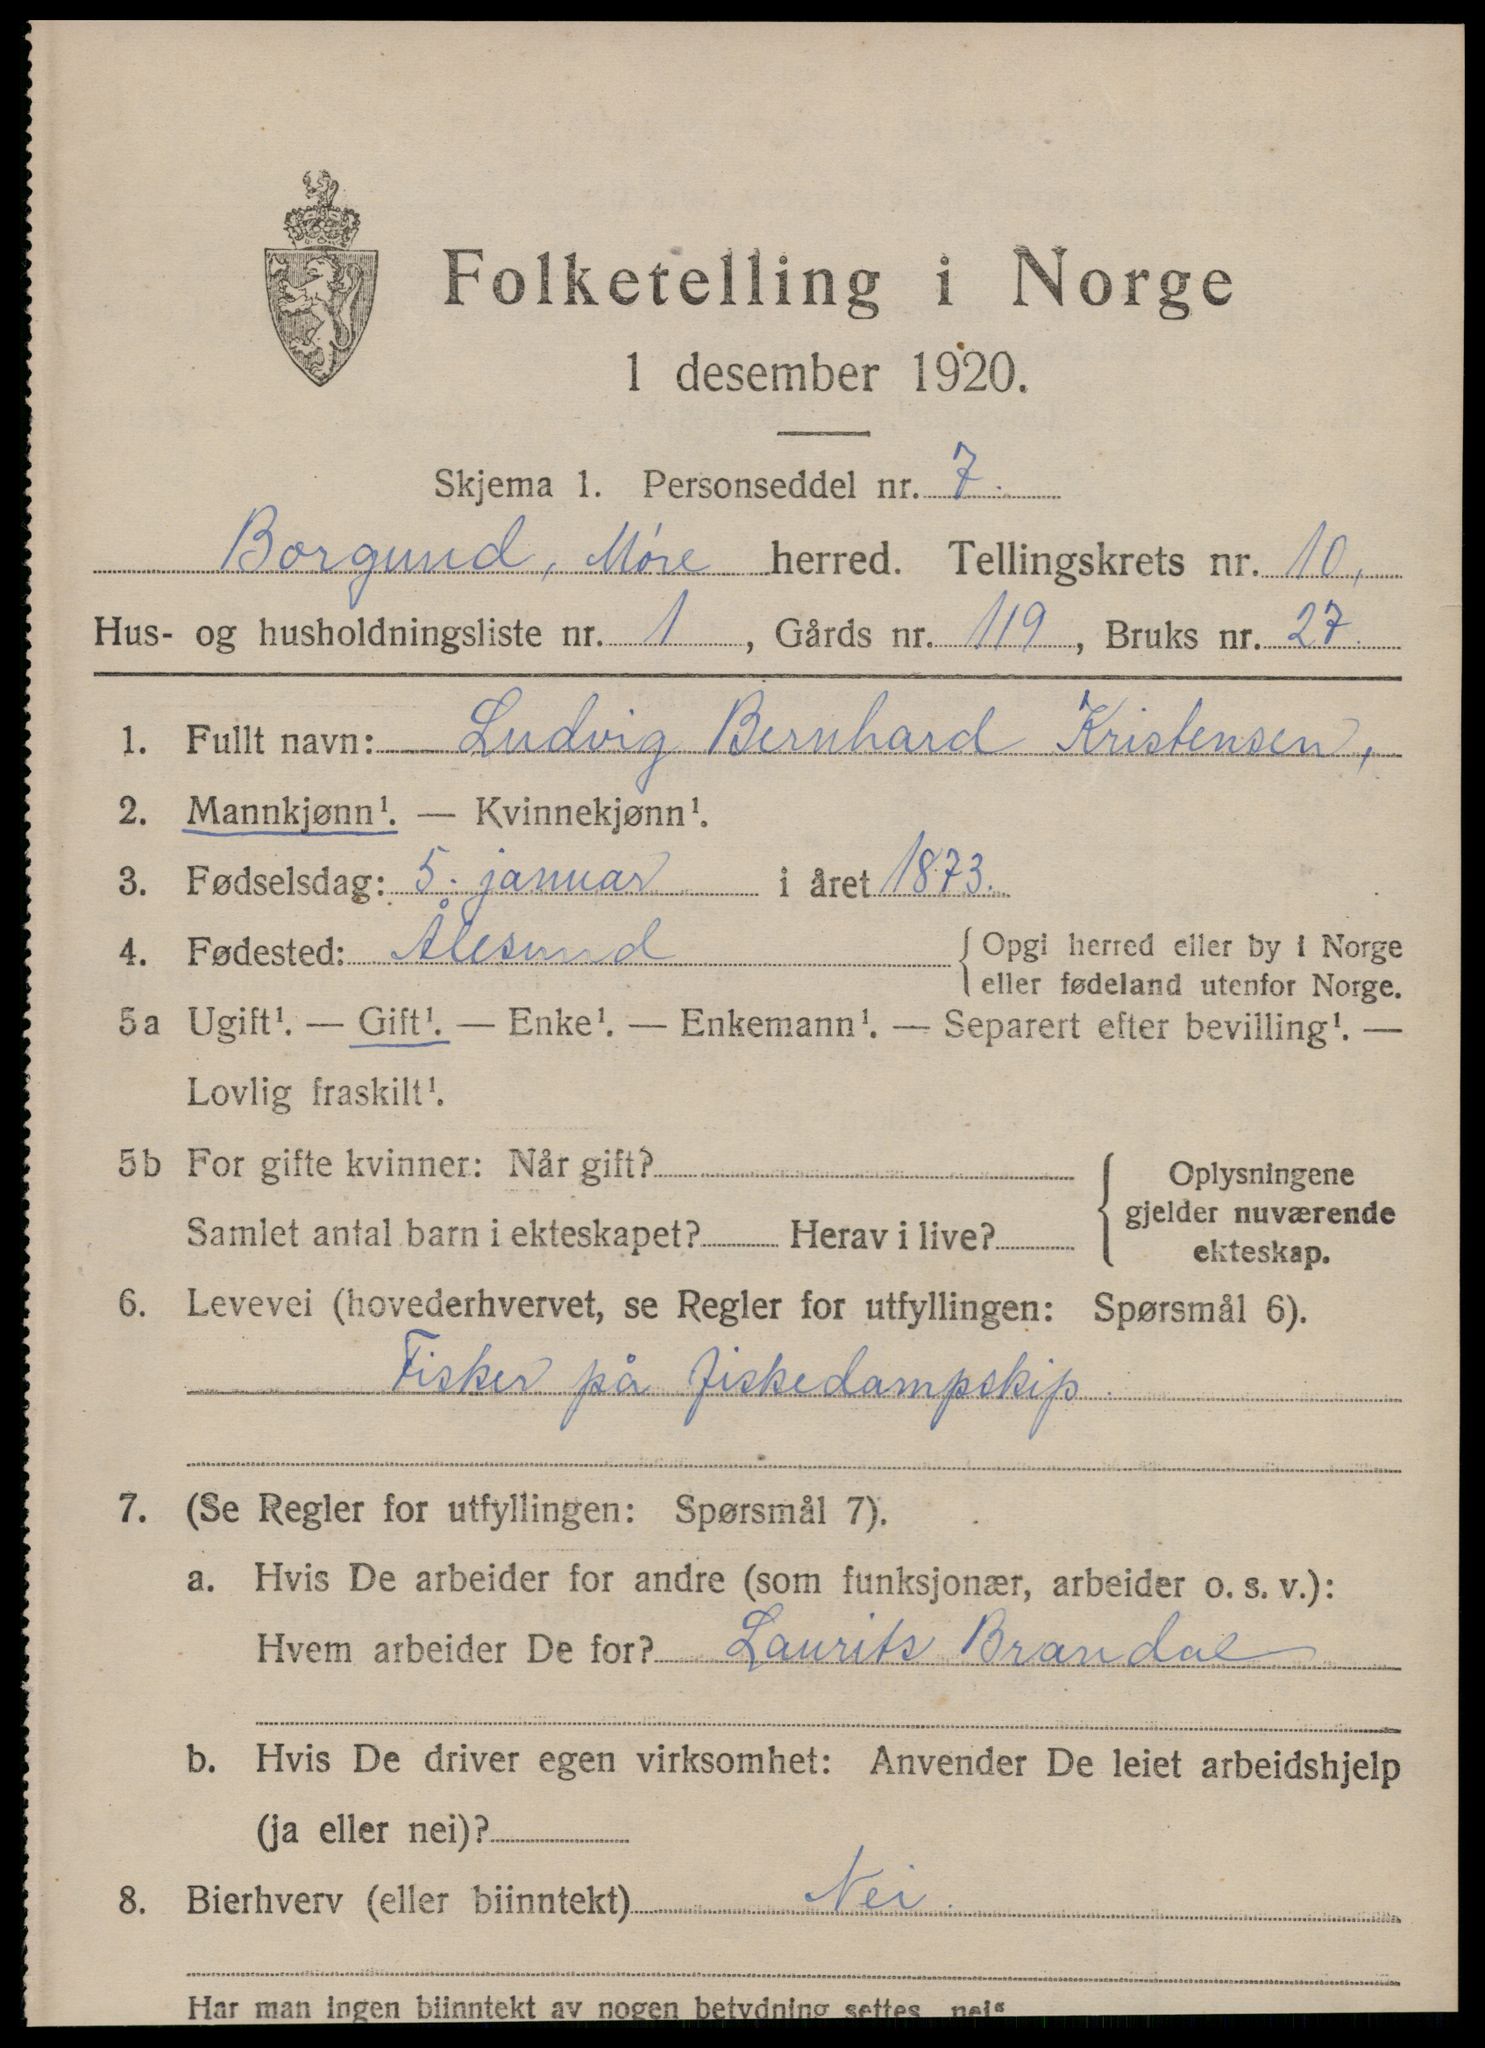 Folketelling i Norge
1 desember 1920.
Skjema 1. Personseddel nr. 7.
Borgund, Møre herred. Tellingskrets nr. 10,
Hus- og husholdningsliste nr. 1, Gårds nr. 119, Bruks nr. 27.
1. Fullt navn: Ludvig Bernhard Kristensen,
2. Mannkjønn¹. — Kvinnekjønn¹.
3. Fødselsdag: 5. januar i året 1873.
4. Fødested: Ålesund { Opgi herred eller by i Norge
eller fødeland utenfor Norge.
5a Ugift¹. — Gift¹. — Enke¹. — Enkemann¹. — Separert efter bevilling¹. —
Lovlig fraskilt¹.
5b For gifte kvinner: Når gift?
Samlet antal barn i ekteskapet? Herav i live?
{ Oplysningene
gjelder nuværende
ekteskap.
6. Levevei (hovederhvervet, se Regler for utfyllingen: Spørsmål 6).
Fisker på fiskedampskip.
7. (Se Regler for utfyllingen: Spørsmål 7).
a. Hvis De arbeider for andre (som funksjonær, arbeider o. s. v.):
Hvem arbeider De for? Laurits Brandal
b. Hvis De driver egen virksomhet: Anvender De leiet arbeidshjelp
(ja eller nei)?
8. Bierhverv (eller biinntekt) Nei.
Har man ingen biinntekt av nogen betydning settes „nei“